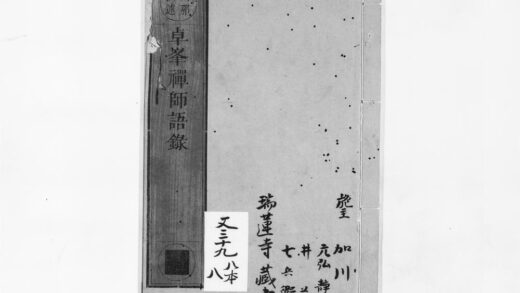 卓峯禪師語錄
施主 加川
元弘 静
井
七兵衛
瑞蓮寺 藏
又三九
八本
八